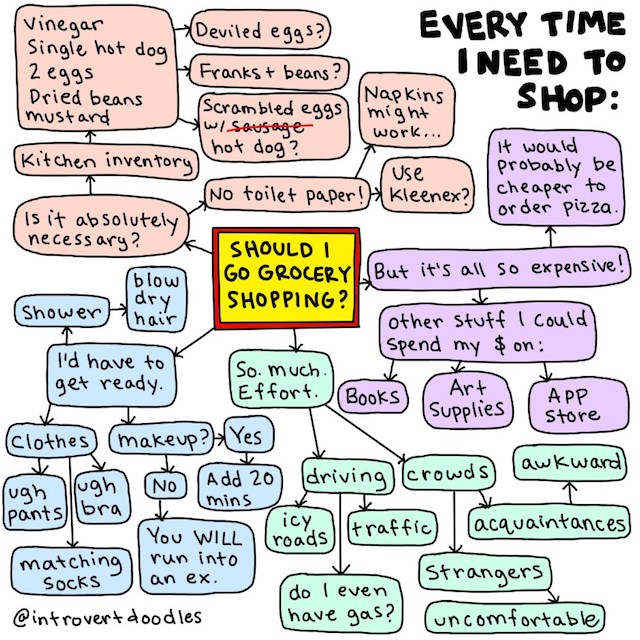 EVERY TIME
I NEED TO
SHOP:
Vinegar
Single hot dog
2 eggs
Dried beans
mustard
Deviled eggs?
Franks + beans?
Scrambled eggs
w/ sausage
hot dog?
Kitchen inventory
Is it absolutely
necessary?
No toilet paper!
Napkins
might
work...
Use
Kleenex?
SHOULD I
GO GROCERY
SHOPPING?
But it's all so expensive!
It would
probably be
cheaper to
order pizza.
other stuff I could
spend my $ on:
Books
Art
Supplies
APP
store
I'd have to
get ready.
Shower
blow
dry
hair
clothes
ugh
pants
ugh
bra
matching
socks
makeup?
Yes
Add 20
mins
No
You WILL
run into
an ex.
So. much.
Effort.
driving
icy
roads
traffic
do I even
have gas?
crowds
acquaintances
awkward
strangers
uncomfortable
@introvertdoodles